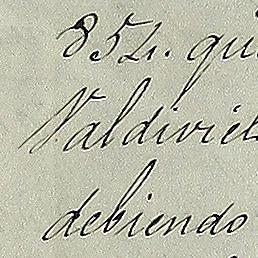 854. qui
Valdiviels
debiendo